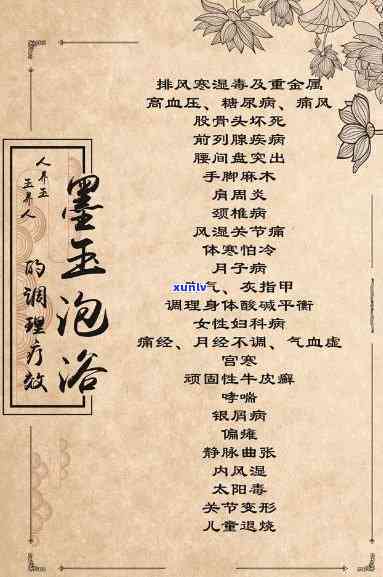 人养玉
玉养人
墨玉泡浴
的调理疗效
排风寒湿毒及重金属
高血压、糖尿病、痛风
股骨头坏死
前列腺疾病
腰间盘突出
手脚麻木
肩周炎
颈椎病
风湿关节痛
体寒怕冷
月子病
xunlv
气、灰指甲
调理身体酸碱平衡
女性妇科病
痛经、月经不调、气血虚
宫寒
顽固性牛皮癣
哮喘
银屑病
偏瘫
静脉曲张
内风湿
太阳毒
关节变形
儿童退烧